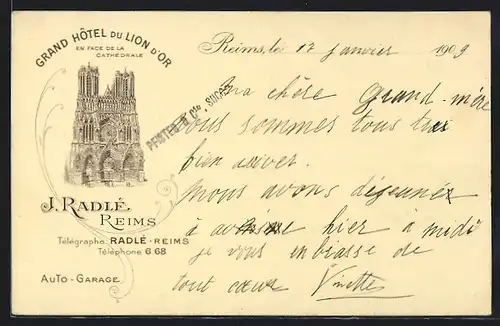 GRAND HÔTEL DU LION D'OR
EN FACE DE LA
CATHÉDRALE
J. RADLÉ.
REIMS
Télégraphe. RADLÉ-REIMS
Téléphone 6.68
AUTO-GARAGE
PFISTER & Cie, SUCRS
Reims, le 17 janvier 1909
Ma chère Grand-mère
nous sommes tous très
bien arriver.
Nous avons déjeuner
à hier à midi
je vous embrasse de
tout cœur